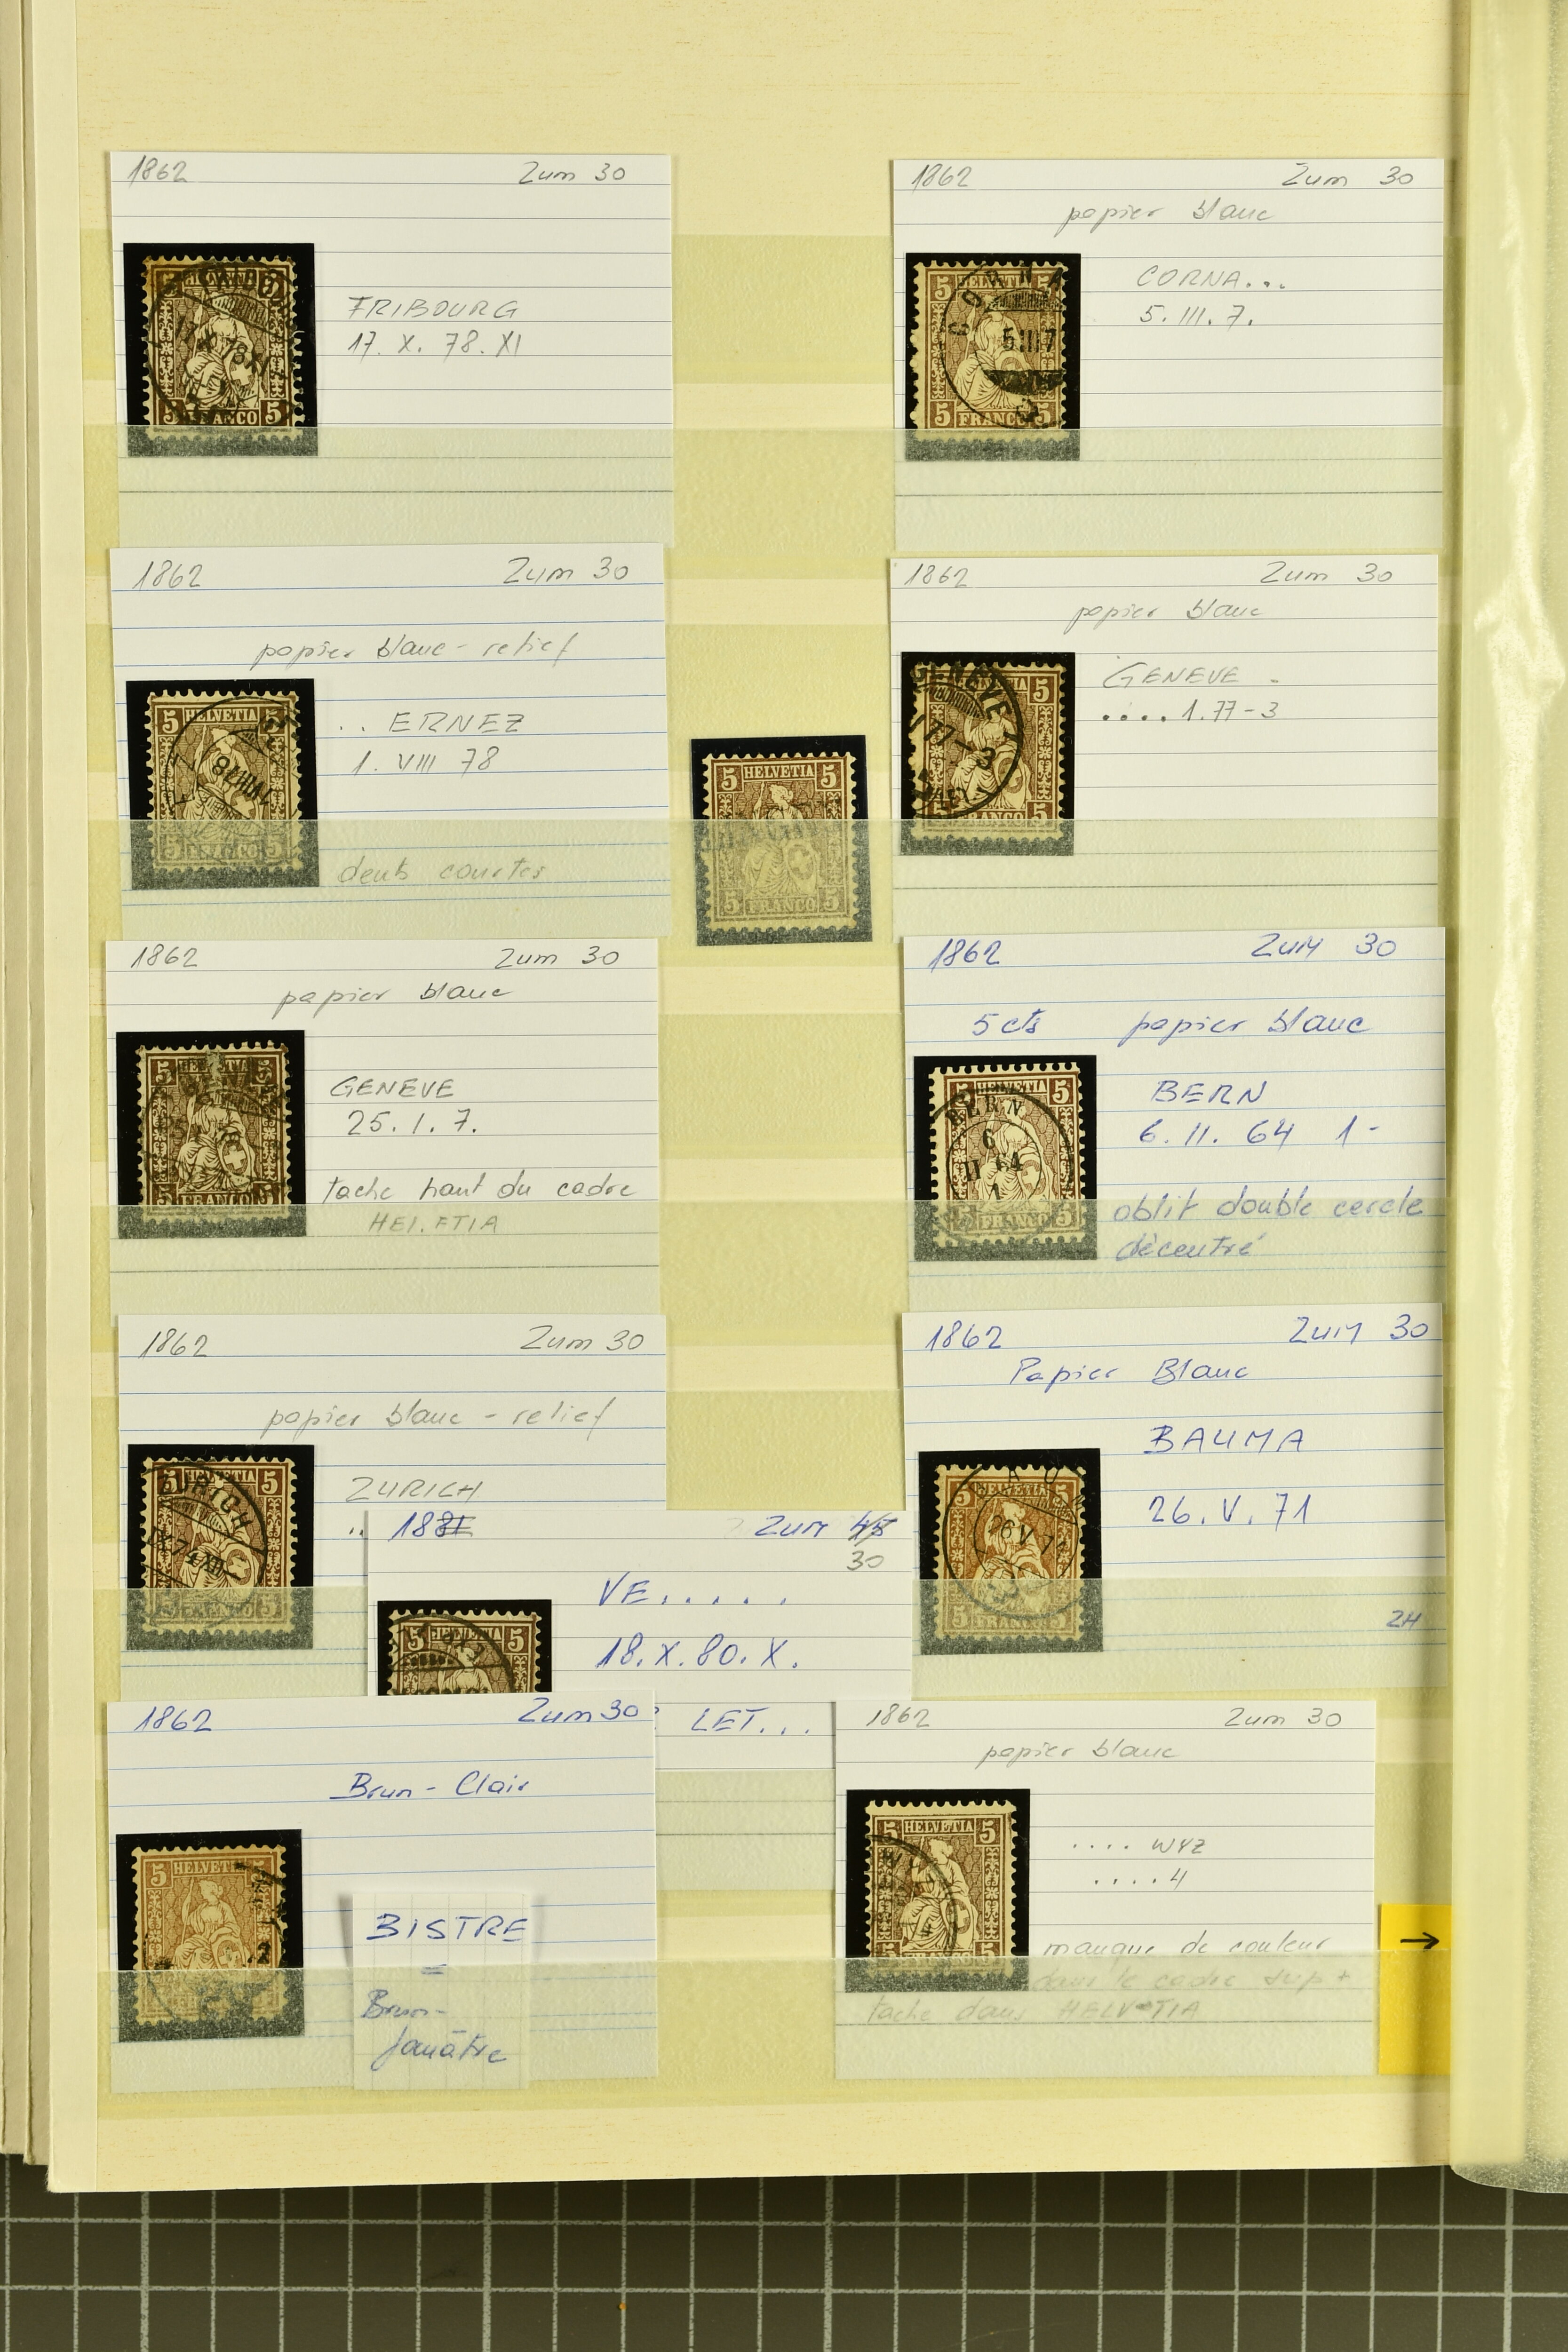 1862 Zum 30
FRIBOURG
17. X. 78. XI
FRANCO 5
1862 Zum 30
papier blanc
CORNA...
5. III. 7.
5 5
CORNA
5 III 7
5 FRANCO 5
1862 Zum 30
papier blanc - relief
.. ERNEZ
1. VIII 78
dents courtes
5 HELVETIA 5
5 FRANCO 5
5 HELVETIA 5
5 FRANCO 5
1862 Zum 30
papier blanc
GENEVE .
.... 1. 77 - 3
GENEVE 5
77-3
FRANCO 5
1862 Zum 30
papier blanc
GENEVE
25. 1. 7.
tache haut du cadre
HELFTIA
5 HELVETIA 5
FRANCO
1862 ZUM 30
5 cts papier blanc
BERN
6. II. 64 1 -
oblit double cercle
décentré
5 HELVETIA 5
BERN
6
II 64
1
FRANCO 5
1862 Zum 30
papier blanc - relief
ZURICH
..
5 HELVETIA 5
ZURICH
74 XII
FRANCO 5
1881 ZUM 45
30
VE.....
18. X. 80. X.
LET...
5 HELVETIA 5
1862 ZUM 30
Papier Blanc
BAUMA
26. V. 71
2H
5 HELVETIA
26 V 71
5 FRANCO 5
1862 Zum 30
Brun - Clair
BISTRE
=
Brun-
jauâtre
5 HELVETIA 5
1862 Zum 30
papier blanc
.... WYZ
.... 4
manque de couleur
dans le cadre sup +
tache dans HELVETIA
5 HELVETIA 5
→